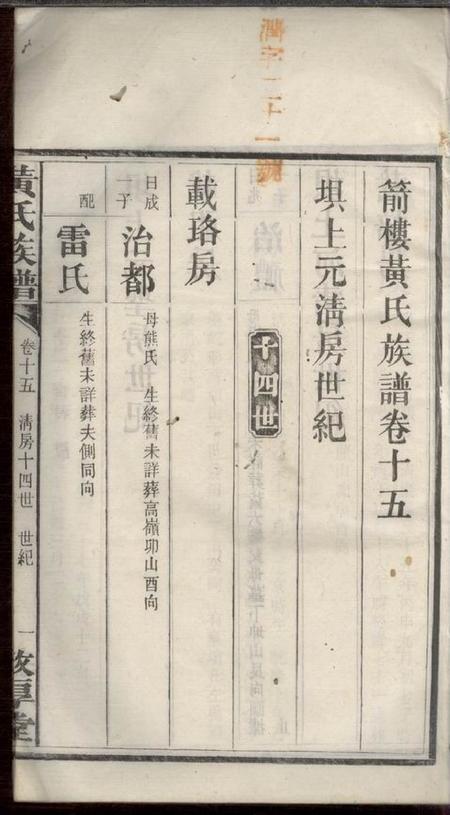 箭樓黃氏族譜卷十五
垻上元淸房世紀
十四世
載珞房
日成
一子
治都
母熊氏 生終舊未詳葬高嶺卯山酉向
配
雷氏
生終舊未詳葬夫側同向
黃氏族譜
卷十五 淸房十四世 世紀
一
敦厚堂